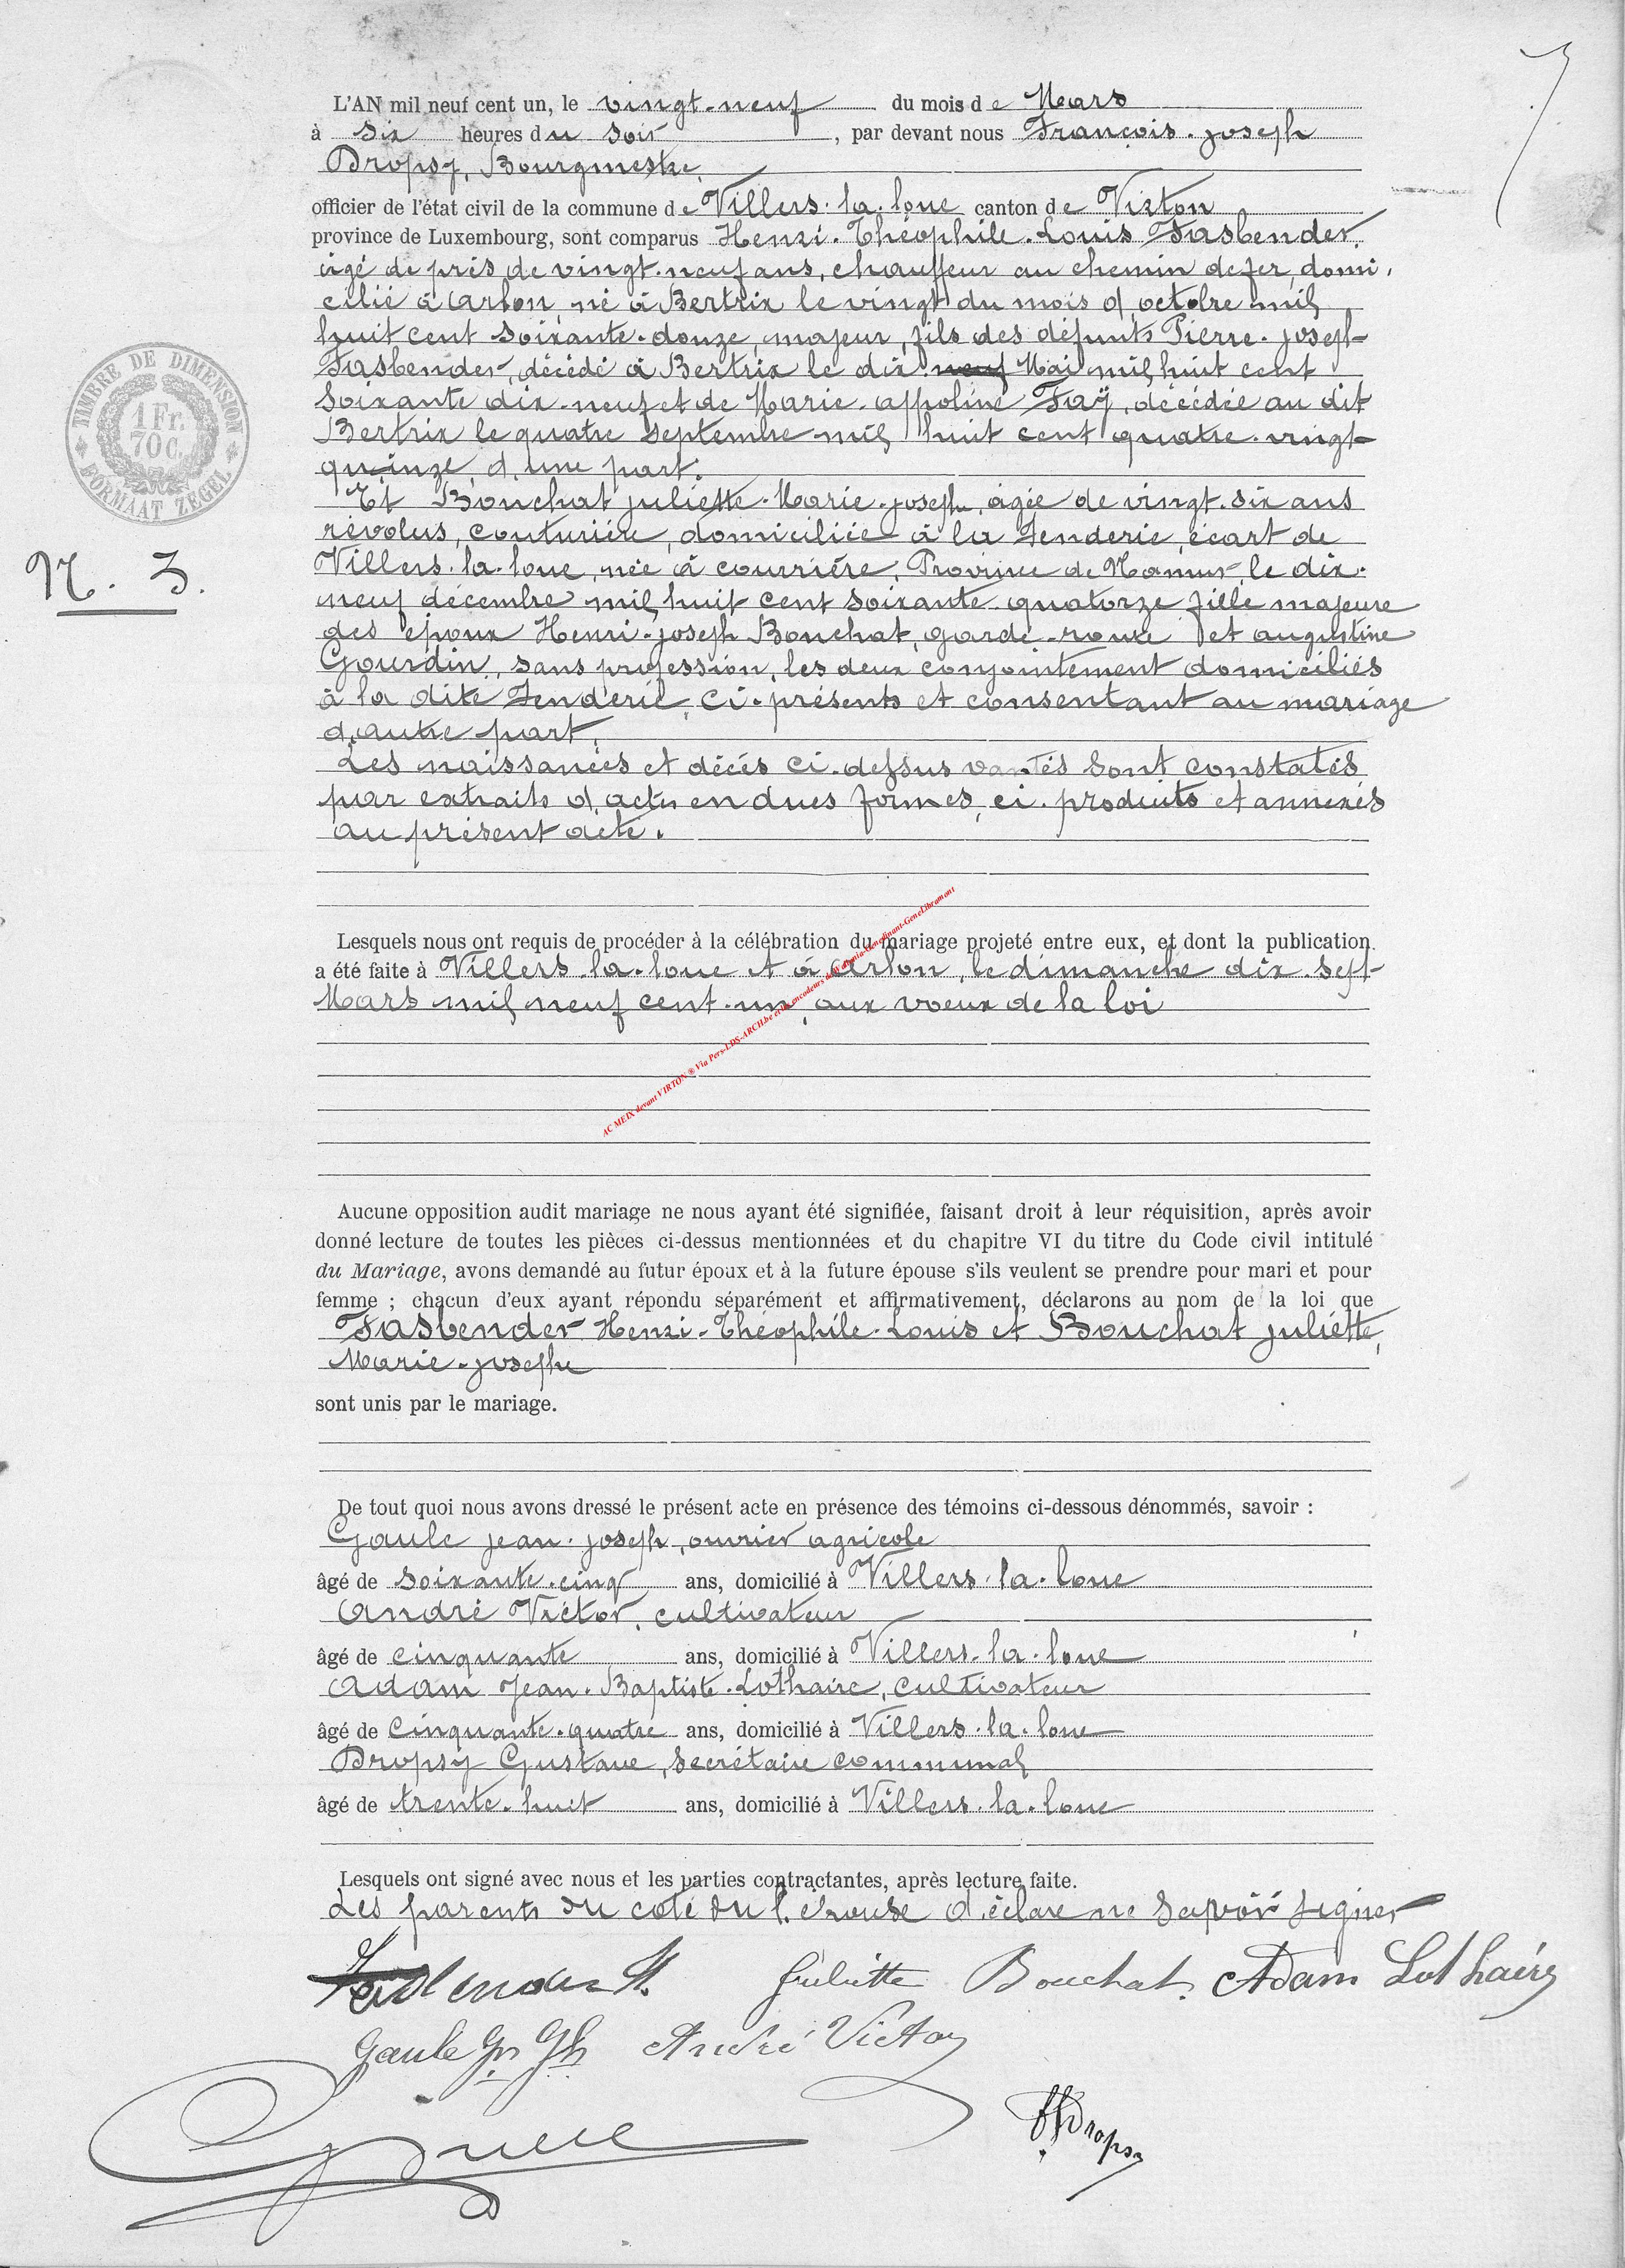 L'AN mil neuf cent un, le vingt-neuf du mois de Mars
à six heures du soir, par devant nous François-joseph
Dropsy, Bourgmestre,
officier de l'état civil de la commune de Villers-la-loue canton de Virton
province de Luxembourg, sont comparus Henri-Théophile-Louis Fasbender,
âgé de près de vingt-neuf ans, chauffeur au chemin de fer, domi-
cilié à Arlon, né à Bertrix le vingt du mois d'octobre mil
huit cent soixante-douze, majeur, fils des défunts Pierre-joseph-
Fasbender, décédé à Bertrix le dix neuf Mai mil huit cent
soixante dix-neuf et de Marie-appoline Faÿ, décédée au dit
Bertrix le quatre septembre mil huit cent quatre-vingt-
quinze, d'une part.
Et Bouchat juliette-Marie-josephe, âgée de vingt-six ans
révolus, couturière, domiciliée à la Tenderie, écart de
Villers-la-loue, née à courrière, Province de Namur, le dix-
neuf décembre mil huit cent soixante-quatorze fille majeure
des époux Henri-joseph Bouchat, garde-route et augustine
Gourdin, sans profession, les deux conjointement domiciliés
à la dite Tenderie, ci-présents et consentant au mariage
d'autre part.
Les naissances et décès ci-dessus vantés sont constatés
par extraits d'actes en dues formes, ci-produits et annexés
au présent acte.
TIMBRE DE DIMENSION
1 Fr.
70 C.
FORMAAT ZEGEL
N. 3.
Lesquels nous ont requis de procéder à la célébration du mariage projeté entre eux, et dont la publication
a été faite à Villers-la-loue et à Arlon, le dimanche dix-sept-
Mars mil neuf cent-un, aux voeux de la loi
AC MEIX devant VIRTON ® Via Pers-LDS-ARCH.be
Aucune opposition audit mariage ne nous ayant été signifiée, faisant droit à leur réquisition, après avoir
donné lecture de toutes les pièces ci-dessus mentionnées et du chapitre VI du titre du Code civil intitulé
du Mariage, avons demandé au futur époux et à la future épouse s'ils veulent se prendre pour mari et pour
femme ; chacun d'eux ayant répondu séparément et affirmativement, déclarons au nom de la loi que
Fasbender Henri-Théophile-Louis et Bouchat juliette,
Marie-josephe
sont unis par le mariage.
De tout quoi nous avons dressé le présent acte en présence des témoins ci-dessous dénommés, savoir :
Gaule jean-joseph, ouvrier agricole
âgé de soixante-cinq ans, domicilié à Villers-la-loue
André Victor, cultivateur
âgé de cinquante ans, domicilié à Villers-la-loue
Adam Jean-Baptiste-Lothaire, cultivateur
âgé de cinquante-quatre ans, domicilié à Villers-la-loue
Dropsy Gustave, secrétaire communal
âgé de trente-huit ans, domicilié à Villers-la-loue
Lesquels ont signé avec nous et les parties contractantes, après lecture faite.
Les parents du coté du l'épouse déclare ne savoir signer
Fasbender H. Juliette Bouchat. Adam Lothaire
Gaule Jn Jh André Victor
FJDropsy